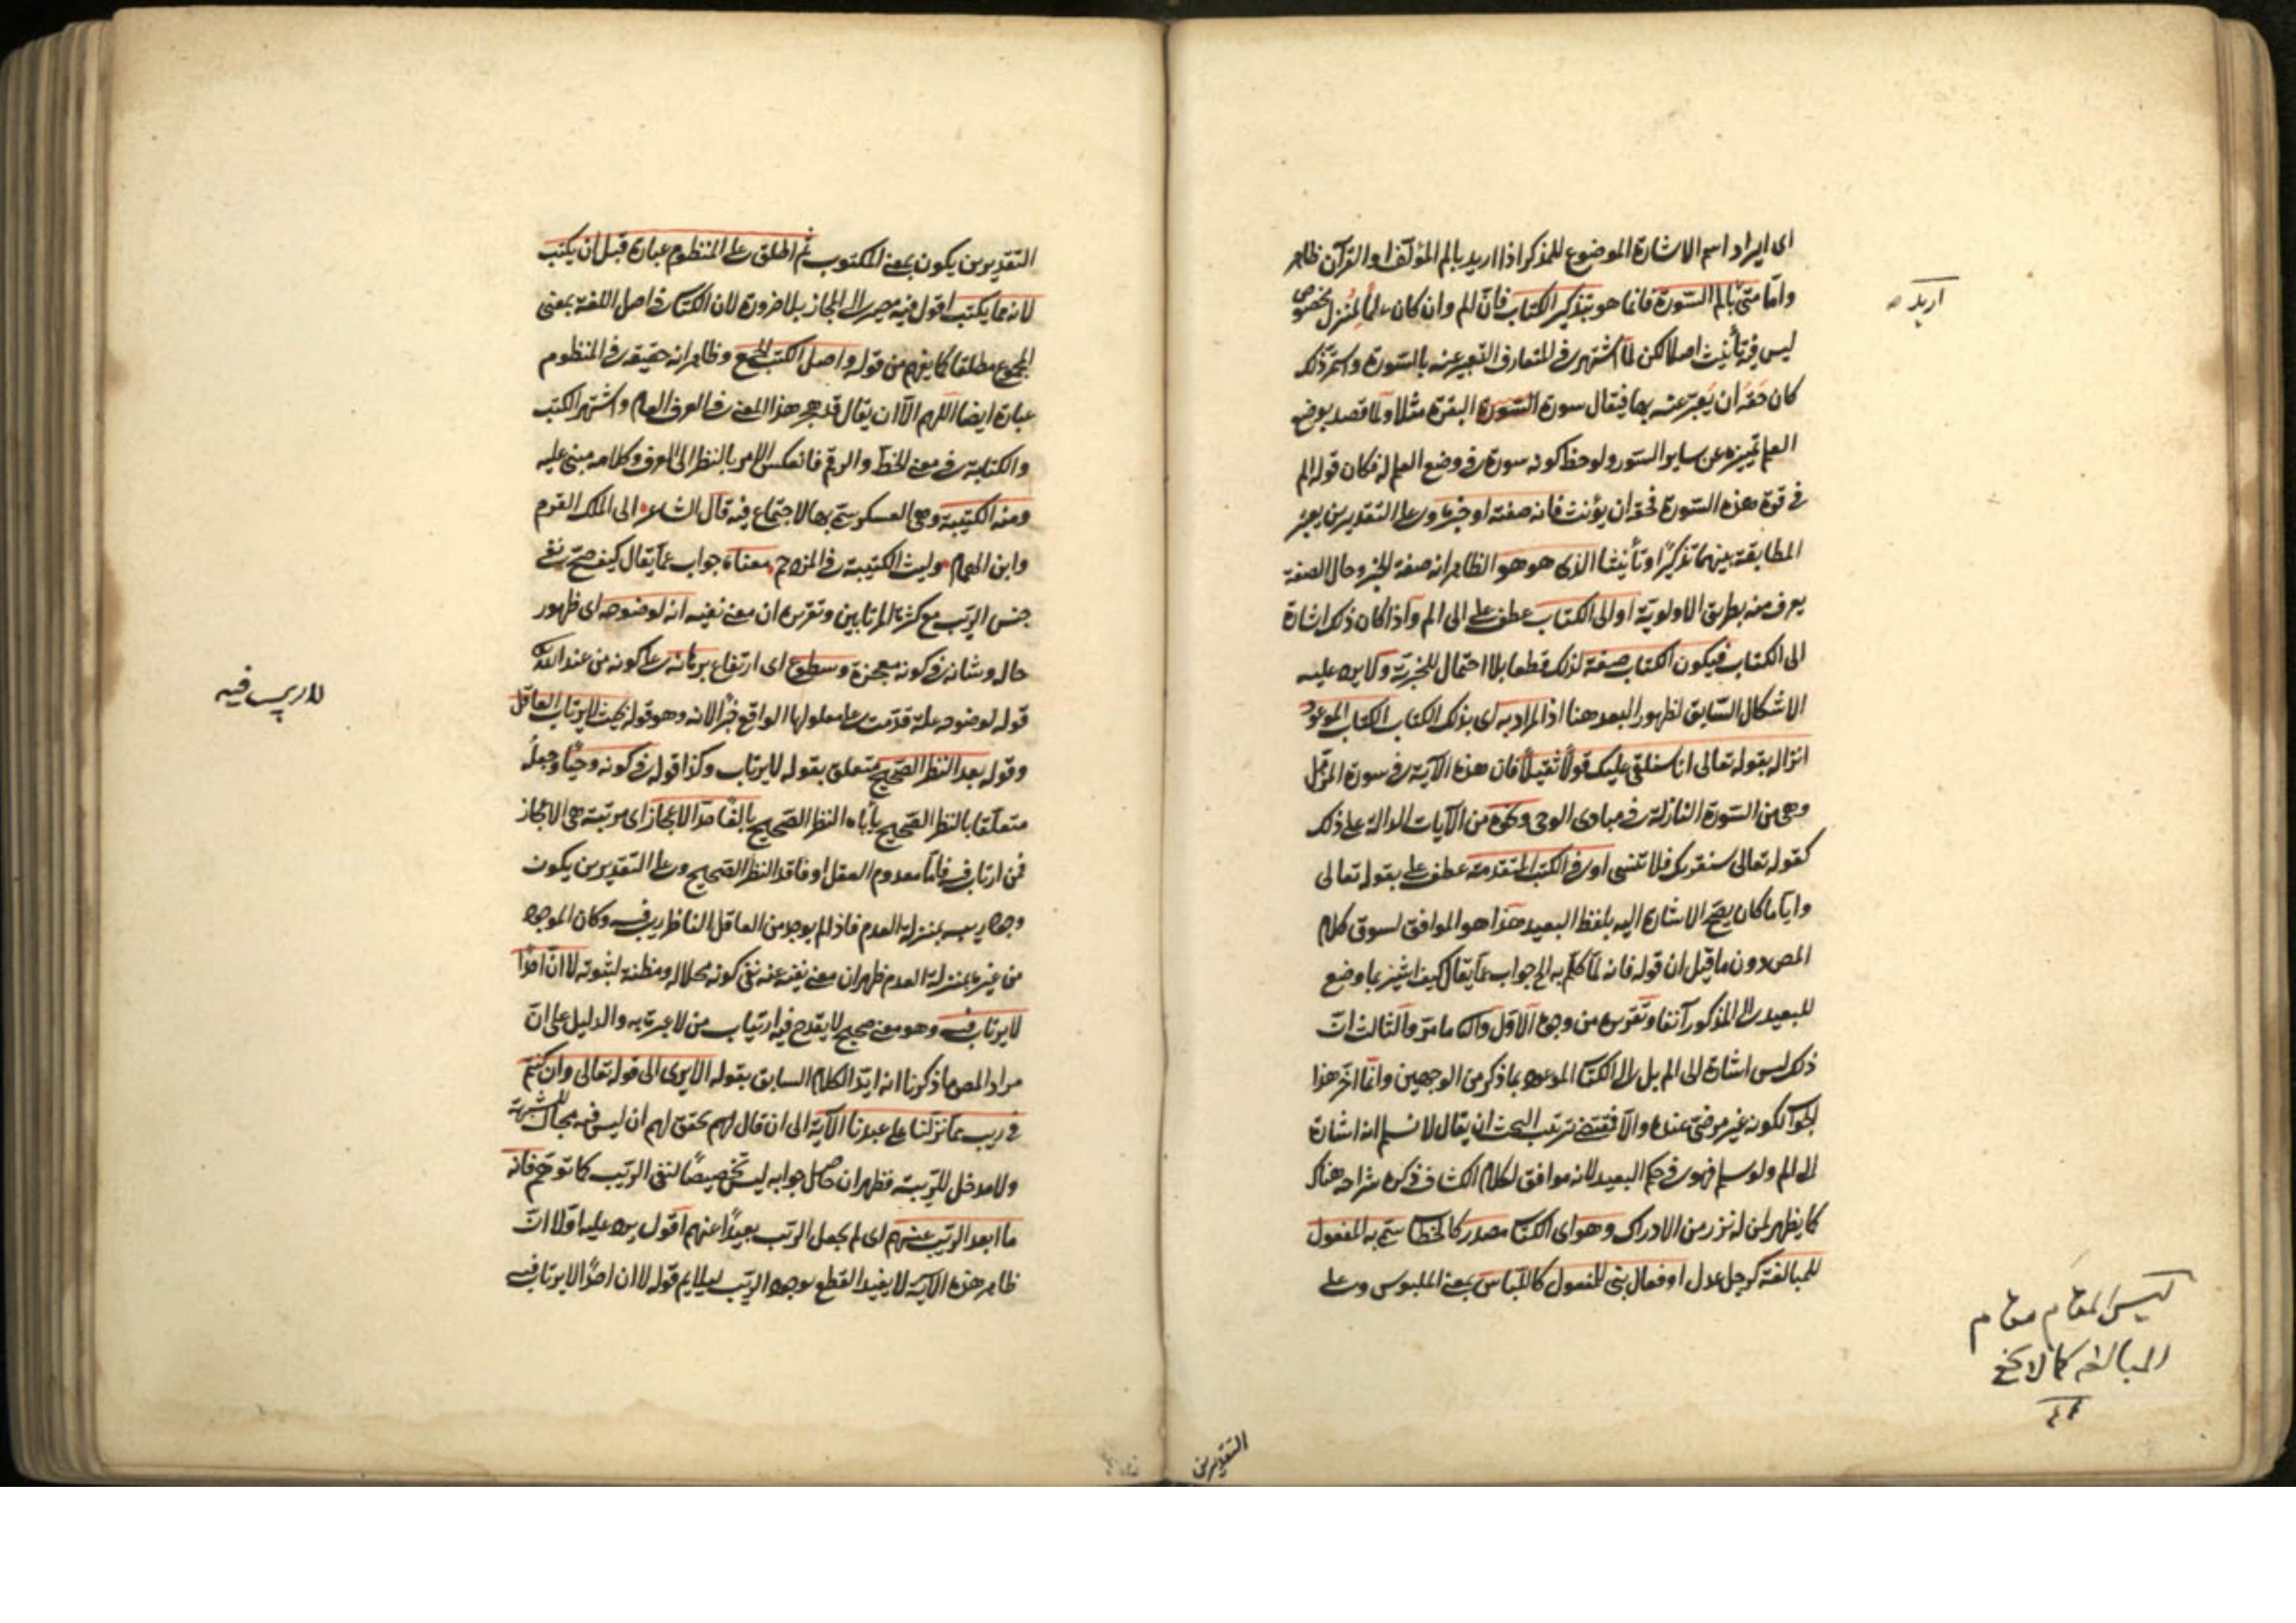 اى ايراد اسم الاشارة الموضوع للمذكر اذا اريد بالم المؤلف او القرآن ظاهر
واما متى بالم السورة فانما هو بتذكير الكتاب فان الم وان كان علما لمنزل مخصوص
اريد صح
ليس فيه تأنيث اصلا لكن لما اشتهر فى المتعارف التعبير عنه بالسورة واستمر ذلك
كان حقه ان يعبر عنه بها فيقال سورة السورة البقرة مثلا ولما قصد بوضع
العلم تميزه عن ساير السور ولوحظ كونه سورة فى وضع العلم له فكان قوله الم
فى قوة هذه السورة فحقه ان يؤنث فانه صفته او خبره وعلى التقديرين يجب
المطابقة بينهما تذكيرا وتأنيثا الذى هو هو الظاهر انه صفة الخبر وحال الصفة
يعرف منه بطريق الاولوية او الى الكتاب عطف على الى الم واذا كان ذلك اشارة
الى الكتاب فيكون الكتاب صفة لذلك قطعا بلا احتمال للخبرية ولا يرد عليه
الاشكال السابق لظهور البعد هنا اذ المراد به اى بذلك الكتاب الكتاب الموعود
انزاله بقوله تعالى انا سنلقى عليك قولا ثقيلا فان هذه الآية فى سورة المزمل
وهى من السورة النازلة فى مبادى الوحى ونحوه من الآيات الدالة على ذلك
كقوله تعالى سنقرئك فلا تنسى او فى الكتب المتقدمة عطف على بقوله تعالى
واياما كان يصح الاشارة اليه بلفظ البعيد هذا هو الموافق لسوق كلام
المص دون ما قيل ان قوله فانه لما تكلم به الخ جواب عما يقال كيف اشير بما وضع
للبعيد الى المذكور آنفا وتقريره من وجوه الاول والثانى ما مر والثالث ان
ذلك ليس اشارة الى الم بل الى الكتاب الموعود بما ذكر من الوجهين وانما اخر هذا
الجواب لكونه غير مرضى عنده والا فمقتضى ترتيب البحث ان يقال لا نسلم انه اشارة
الى الم ولو سلم فهو فى حكم البعيد لانه موافق لكلام الكشاف ذكره شراحه هناك
كما يظهر لمن له نزر من الادراك وهو اى الكتاب مصدر كالخطاب سمى به المفعول
للمبالغة كرجل عدل او فعال بنى للمفعول كاللباس بمعنى الملبوس وعلى
ليس المقام مقام
المبالغة كما لا يخفى
التقديرين
التقديرين يكون بمعنى المكتوب ثم اطلق على المنظوم عبارة قبل ان يكتب
لانه مما يكتب اقول فيه مصير الى المجاز بلا ضرورة لان الكتاب فى اصل اللغة بمعنى
المجموع مطلقا كما يفهم من قوله واصل الكتب الجمع وظاهر انه حقيقة فى المنظوم
عبارة ايضا اللهم الا ان يقال قد هجر هذا المعنى فى العرف العام واشتهر الكتب
والكتابة فى معنى الخط والرقم فانعكس الامر بالنظر الى العرف وكلامه مبنى عليه
ومنه الكتيبة وهى العسكر سمى بها لاجتماع فيه قال الشاعر الى الملك القرم
وابن الهمام وليث الكتيبة فى المزدحم معناه جواب عما يقال كيف صح نفى
جنس الريب مع كثرة المرتابين وتقريره ان معنى نفيه انه لوضوحه اى ظهور
حاله وشانه فى كونه معجزة وسطوع اى ارتفاع برهانه على كونه من عند الله
قوله لوضوحه علة قدمت على معلولها الواقع خبرا لانه وهو قوله بحيث لا يرتاب العاقل
لا ريب فيه
وقوله بعد النظر الصحيح متعلق بقوله لا يرتاب وكذا قوله فى كونه وحيا وجعله
متعلقا بالنظر الصحيح يأباه النظر الصحيح بالغا حد الاعجاز اى مرتبة هى الاعجاز
فمن ارتاب فيه فاما معدوم العقل او فاقد النظر الصحيح وعلى التقديرين يكون
وجود ريبه بمنزلة العدم فاذا لم يوجد من العاقل الناظر ريب فيه وكان الموجود
من غيره بمنزلة العدم ظهر ان معنى نفيه عنه نفى كونه محلا له ومظنة لثبوته لا ان احدا
لا يرتاب فيه وهو معنى صحيح لا يقدح فيه ارتياب من لا عبرة به والدليل على ان
مراد المص ما ذكرنا انه ايد الكلام السابق بقوله الا يرى الى قوله تعالى وان كنتم
فى ريب مما نزلنا على عبدنا الآية الى ان قال لهم تحقق لهم ان ليس فيه مجال للشبهة
ولا مدخل للريبة فظهر ان حاصل جوابه ليس تخصيصا لنفى الريب كما توهم فانه
ما ابعد الريب عنهم اى لم يجعل الريب بعيدا عنهم اقول يرد عليه اولا ان
ظاهر هذه الآية لا يفيد القطع بوجود الريب ليلايم قوله لا ان احدا لا يرتاب فيه